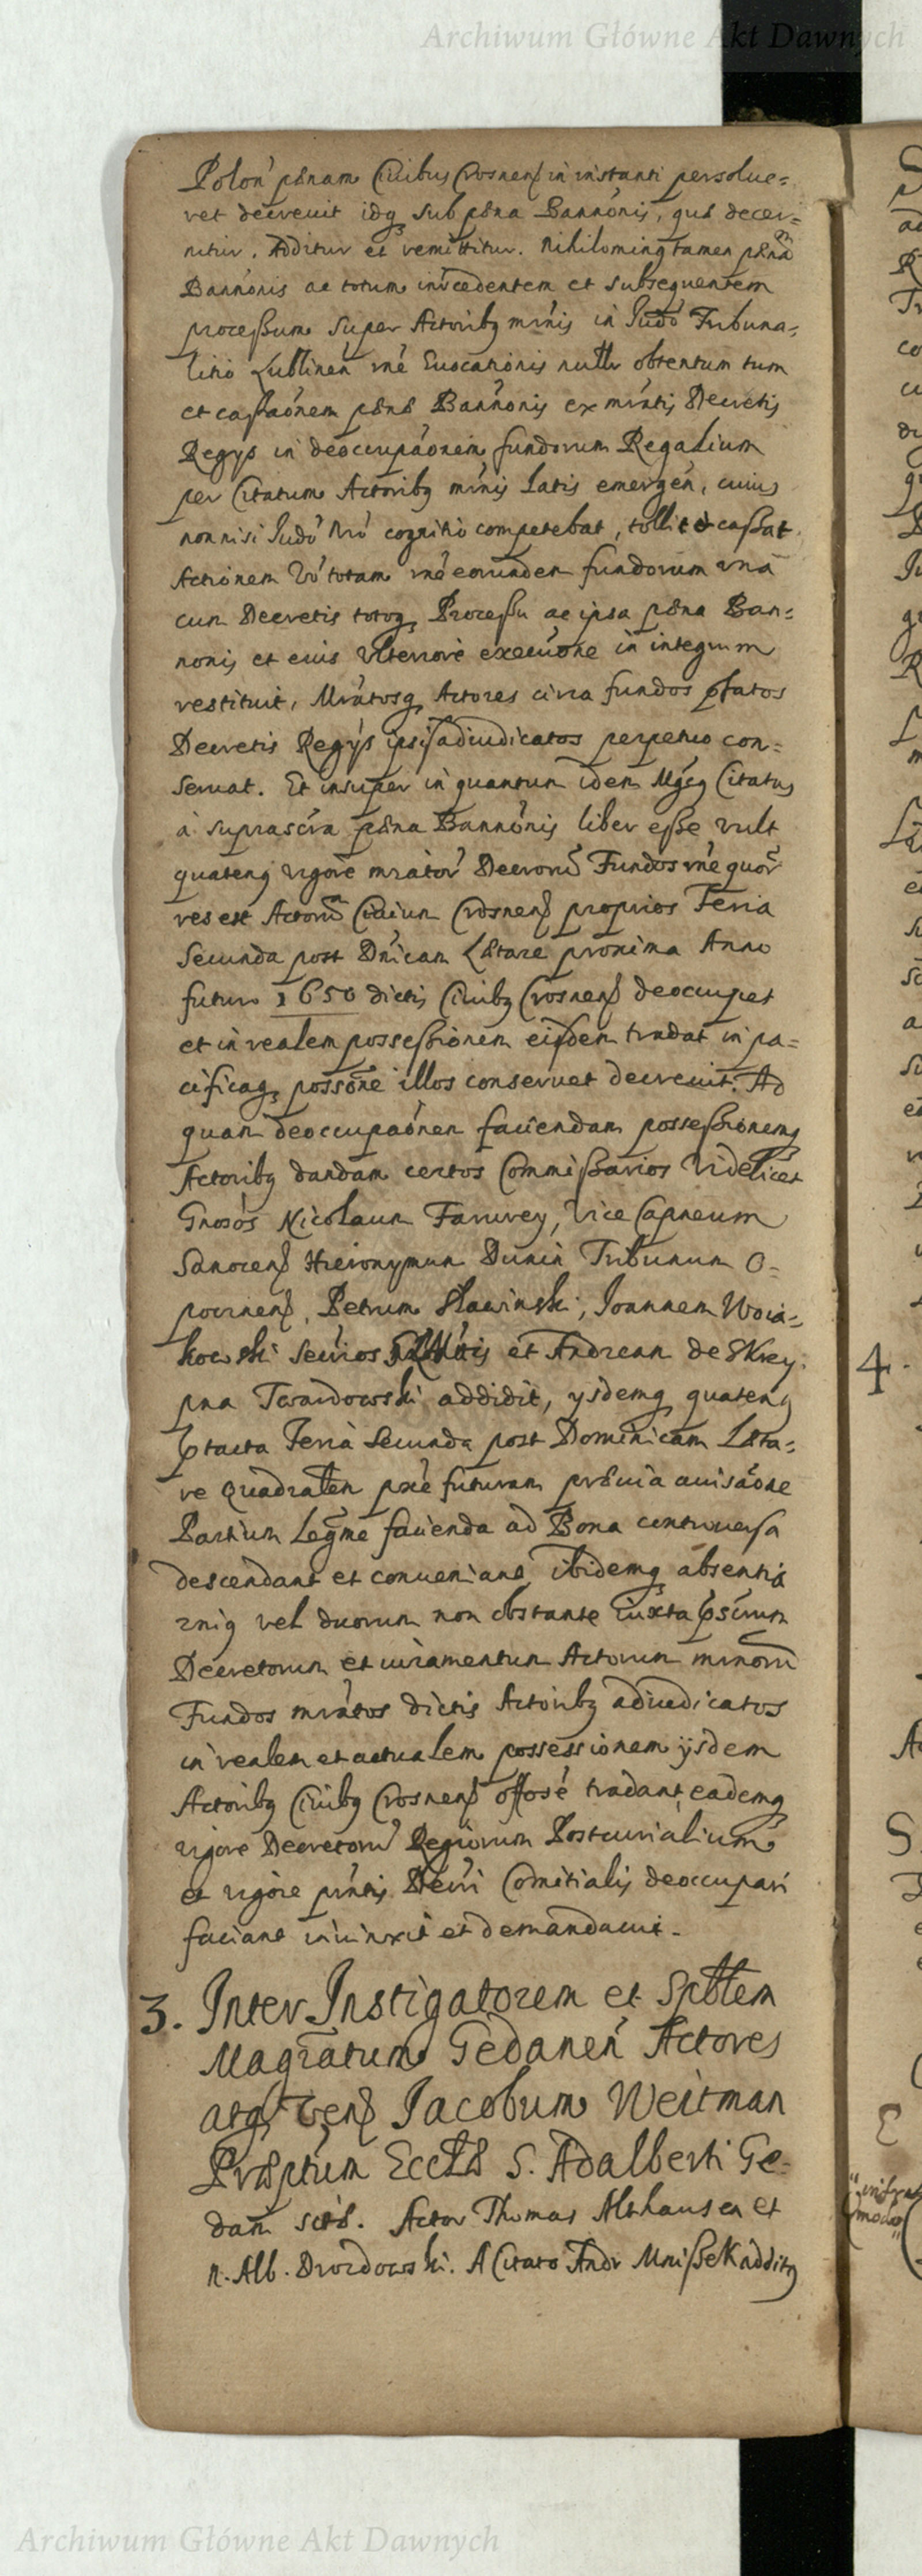 Archiwum Główne Akt Dawnych
Polon' pænam Civibus Crosnens in instanti persolue=
ret decreuit idq sub pæna Bannonis, quæ decer=
nitur. Additur et remittitur. Nihilominq tamen pænam
Bannonis ac totum incedentem et subsequentem
processum super Actoribq minis in Judo Tribuna=
litio Lublinen rné Euocationis nullr obtentum tum
et cassaonem pænæ Bannonis ex mratis Decretis
Regys in deoccupaonem fundorum Regalium
per Citatum Actoribq minis latis emergen, cuius
non nisi Judo Nro cognitio competebat, tollit & cassat.
Actionem Vo totam rné eorundem fundorum vna
cum Decretis totoq Processu ac ipsa pæna Ban=
nonis et eius vlteriore execuone in integrum
restituit, Mratosq Actores circa fundos pfatos
Decretis Regys ipsis adiudicatos perpetuo con=
seruat. Et insuper in quantum idem Mgcq Citatus
a suprascra pæna Bannonis liber esse vult
quatenq vigore mrator Decroru Fundos rné quor
res est Actoru Ciuium Crosnens proprios Feria
Secunda post Dnicam Lætare proxima Anno
futuro 1650 dictis Ciuibq Crosnens deoccupet
et in realem possessionem eisdem tradat in pa=
cificaq possone illos conseruet decreuit. Ad
quam deoccupaonem faciendam possessionemq
Actoribq dandam certos Commissarios Videlicet
Gnosos Nicolaum Farurey, Vice Capneum
Sanocens Hieronymum Dunin Tribunum O=
pocznens, Petrum Slawinski, Joannem Woia=
kowski Secrios et Andream de Skrzy
pna Twardowski addidit, ysdemq quatenq
ptacta Feria Secunda post Dominicam Læta=
re Quadralem pxé futuram præuia auisaone
Partium Legme facienda ad Bona controuersa
descendant et conueniant, ibidemq absentia
vniq vel duorum non obstante iuxta pscrum
Decretorum et iuramentum Actorum mrnoru
Fundos mratos dictis Actoribq adiudicatos
in realem et actualem possessionem ysdem
Actoribq Ciuibq Crosnens offosé tradant eademq
vigore Decretoru Regiorum Postcurialium
et vigore pntis Decri Comitialis deoccupari
faciant iniunxit et demandauit.
3. Inter Instigatorem et Spblem
Magratum Gedanen Actores
atq Vens Jacobum Weitman
Præptum Ecclæ S. Adalberti Ge=
dan sctæ. Actor Thomas Althausen et
n. Alb. Drozdowski. A Citato Andr MnisseK additq
4.
Archiwum Główne Akt Dawnych